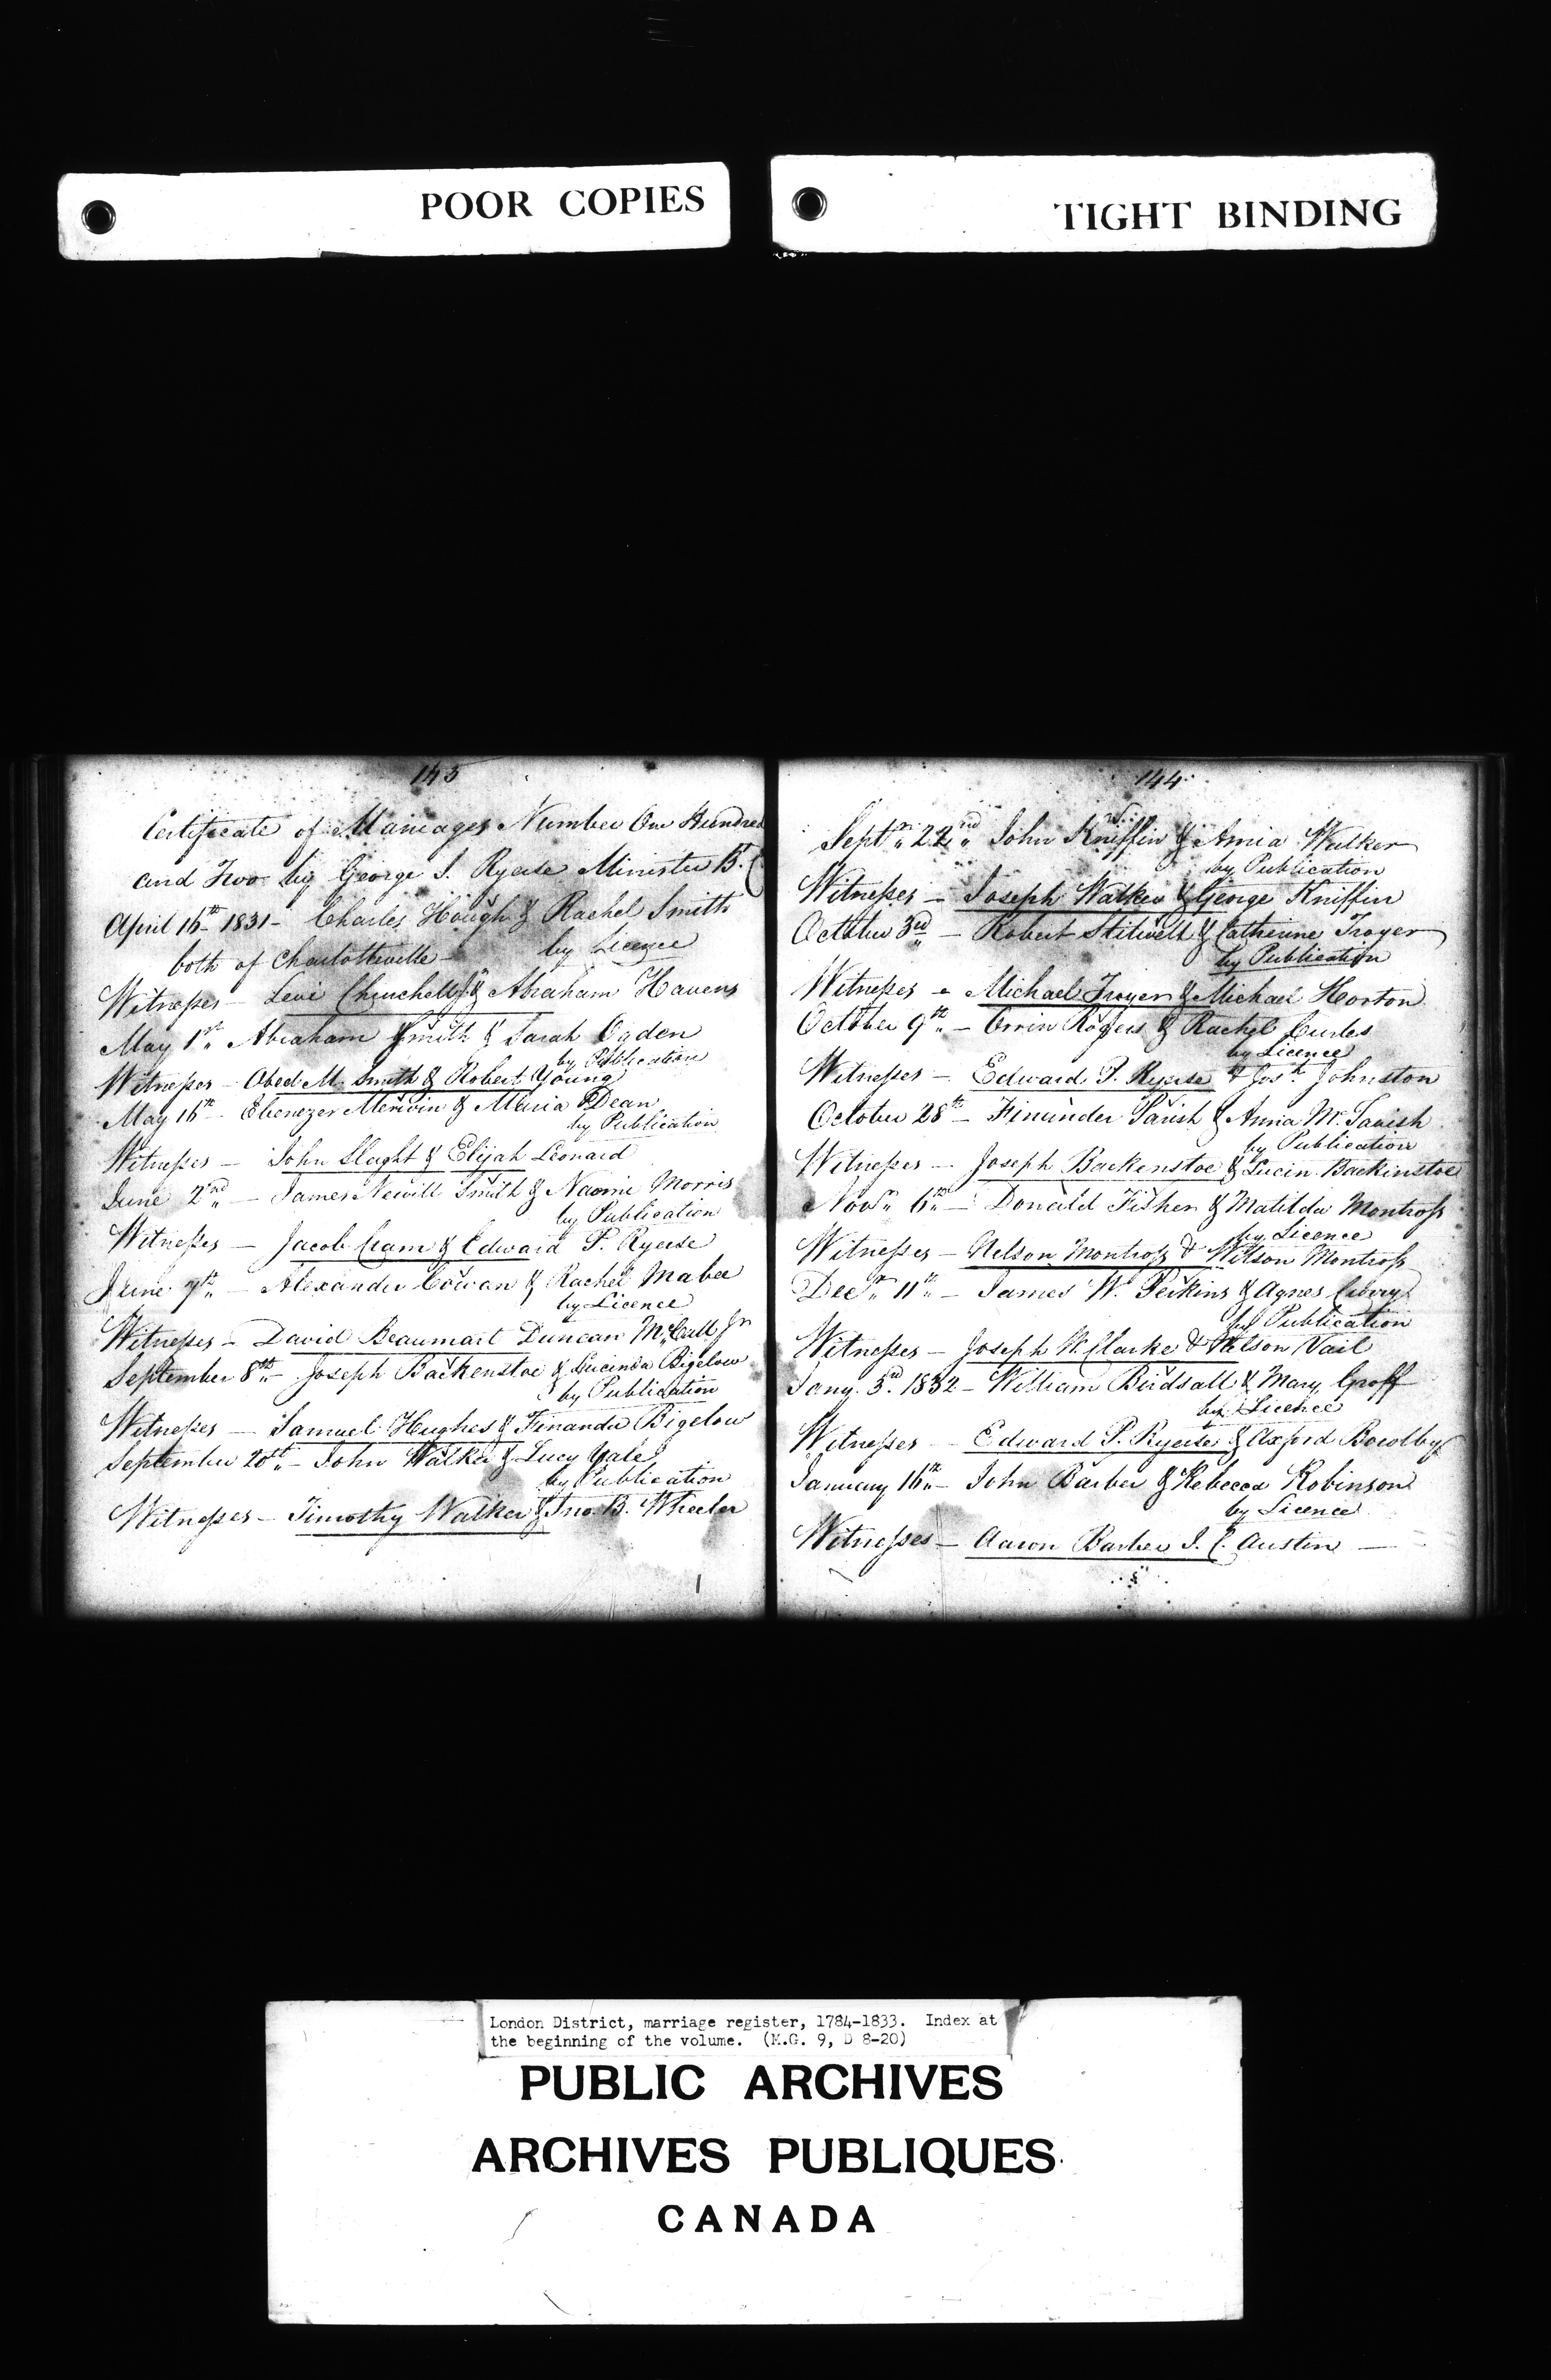 POOR COPIES
TIGHT BINDING
143
Certificate of Marriages Number One Hundred
and Two by George J. Ryerse Minister B. C
April 16th 1831 - Charles Hough & Rachel Smith
both of Charlotteville - by Licence
Witnesses - Levi Churchell & Abraham Havens
May 1st Abraham Smith & Sarah Ogden
by Publication
Witnesses - Obed M. Smith & Robert Young
May 16th - Ebenezer Merwin & Maria Dean
by Publication
Witnesses - John Slaght & Elijah Leonard
June 2nd - James Newill Smith & Naomi Morris
by Publication
Witnesses - Jacob Cram & Edward P. Ryerse
June 7th - Alexander Cowan & Rachel Mabee
by Licence
Witnesses - David Beaumart Duncan McCall Jr
September 8th - Joseph Backenstoe & Lucinda Bigelow
by Publication
Witnesses - Samuel Hughes & Finanda Bigelow
September 20th - John Walker & Lucy Yale
by Publication
Witnesses - Timothy Walker & Jno. B. Wheeler
144
Septr 22nd John Kniffin & Amia Walker
by Publication
Witnesses - Joseph Walker & George Kniffin
October 3rd - Robert Stilwell & Catherine Troyer
by Publication
Witnesses - Michael Troyer & Michael Horton
October 9th - Orrin Rogers & Rachel Curles
by Licence
Witnesses - Edward P. Ryerse & Josh Johnston
October 28th - Finunder Parish & Anna M.
by Publication
Witnesses - Joseph Backenstoe & Lucin Backinstoe
Novr 6th - Donald Fisher & Matilda Montross
by Licence
Witnesses - Nelson Montross & Wilson Montross
Decr 11th - James W. Perkins & Agnes
by Publication
Witnesses - Joseph W. Clarke & Nelson Vail
Jany. 3d. 1832 - William Birdsall & Mary Groff
by Licence
Witnesses - Edward P. Ryerse & Axford Bowlby
January 16th - John Barber & Rebecca Robinson
by Licence
Witnesses - Aaron Barber J. C. Austin -
London District, marriage register, 1784-1833. Index at
the beginning of the volume. (M.G. 9, D 8-20)
PUBLIC ARCHIVES
ARCHIVES PUBLIQUES
CANADA